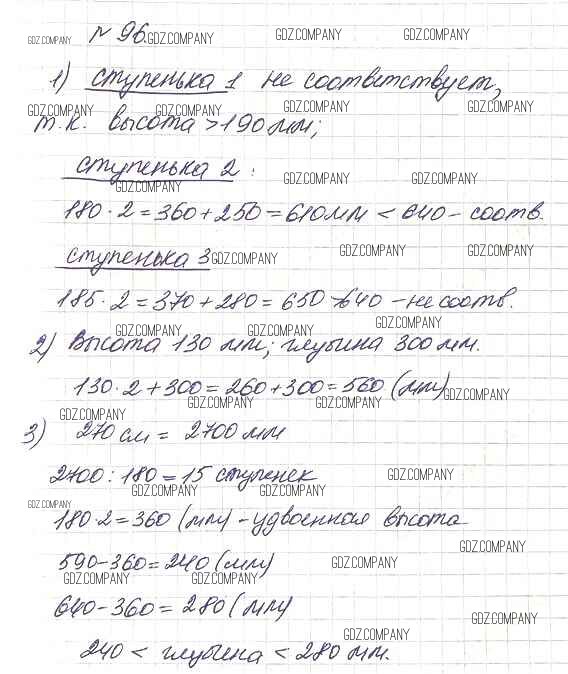 № 96. GDZ.COMPANY GDZ.COMPANY GDZ.COMPANY GDZ.COMPANY
1) ступенька 1 не соответствует,
GDZ.COMPANY GDZ.COMPANY GDZ.COMPANY GDZ.COMPANY
т.к. высота > 190 мм;
ступенька 2:
GDZ.COMPANY GDZ.COMPANY GDZ.COMPANY
180 · 2 = 360 + 250 = 610 мм < 640 - соотв.
ступенька 3 GDZ.COMPANY GDZ.COMPANY GDZ.COMPANY
185 · 2 = 370 + 280 = 650 > 640 - не соотв.
GDZ.COMPANY GDZ.COMPANY GDZ.COMPANY
2) Высота 130 мм; глубина 300 мм.
130 · 2 + 300 = 260 + 300 = 560 (мм) GDZ.COMPANY
GDZ.COMPANY GDZ.COMPANY GDZ.COMPANY
3) 270 см = 2700 мм
2700 : 180 = 15 ступенек GDZ.COMPANY
GDZ.COMPANY GDZ.COMPANY GDZ.COMPANY
180 · 2 = 360 (мм) - удвоенная высота
GDZ.COMPANY
590 - 360 = 240 (мм) GDZ.COMPANY
GDZ.COMPANY GDZ.COMPANY
640 - 360 = 280 (мм) GDZ.COMPANY
GDZ.COMPANY
240 < глубина < 280 мм.